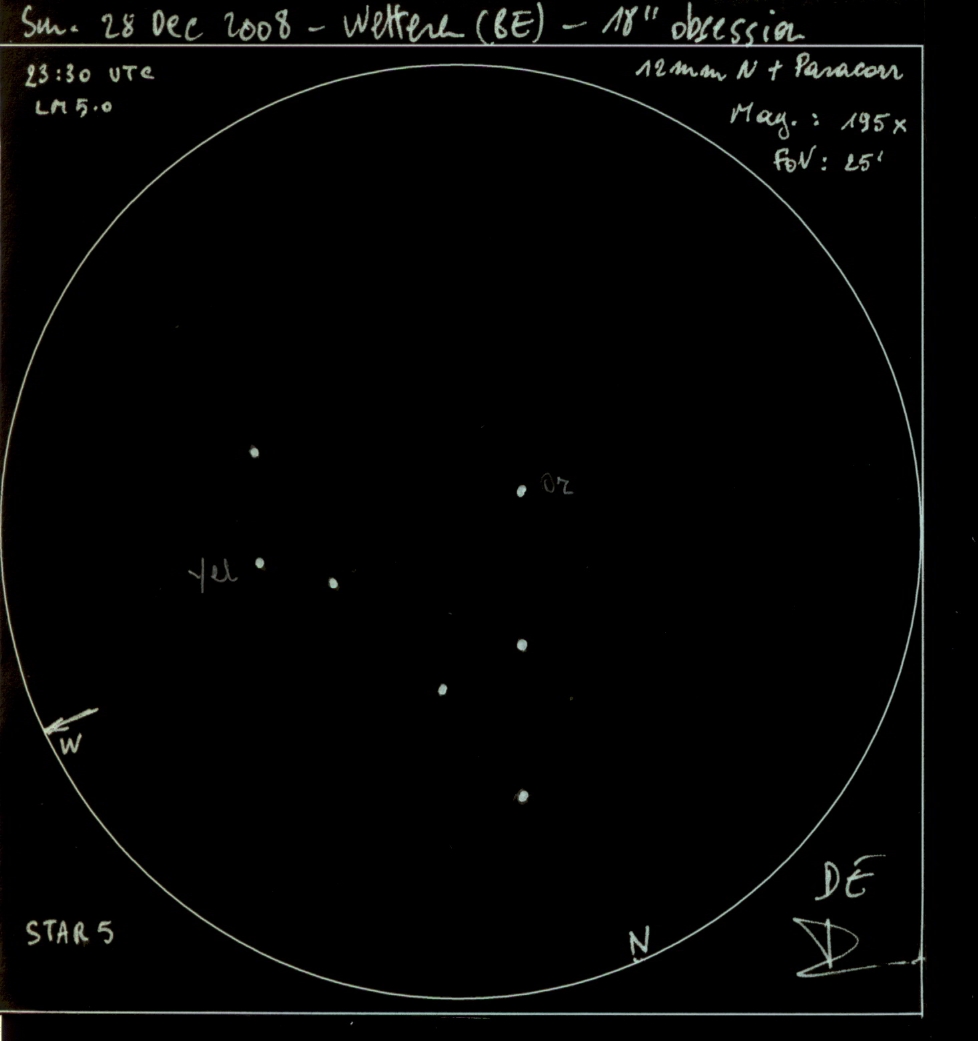 Sun. 28 Dec 2008 - Wetteren (BE) - 18" obsession
23:30 UTC
LM 5.0
12mm N + Paracorr
Mag. : 195x
FoV : 25'
Or
Yel
W
N
DE
STAR 5